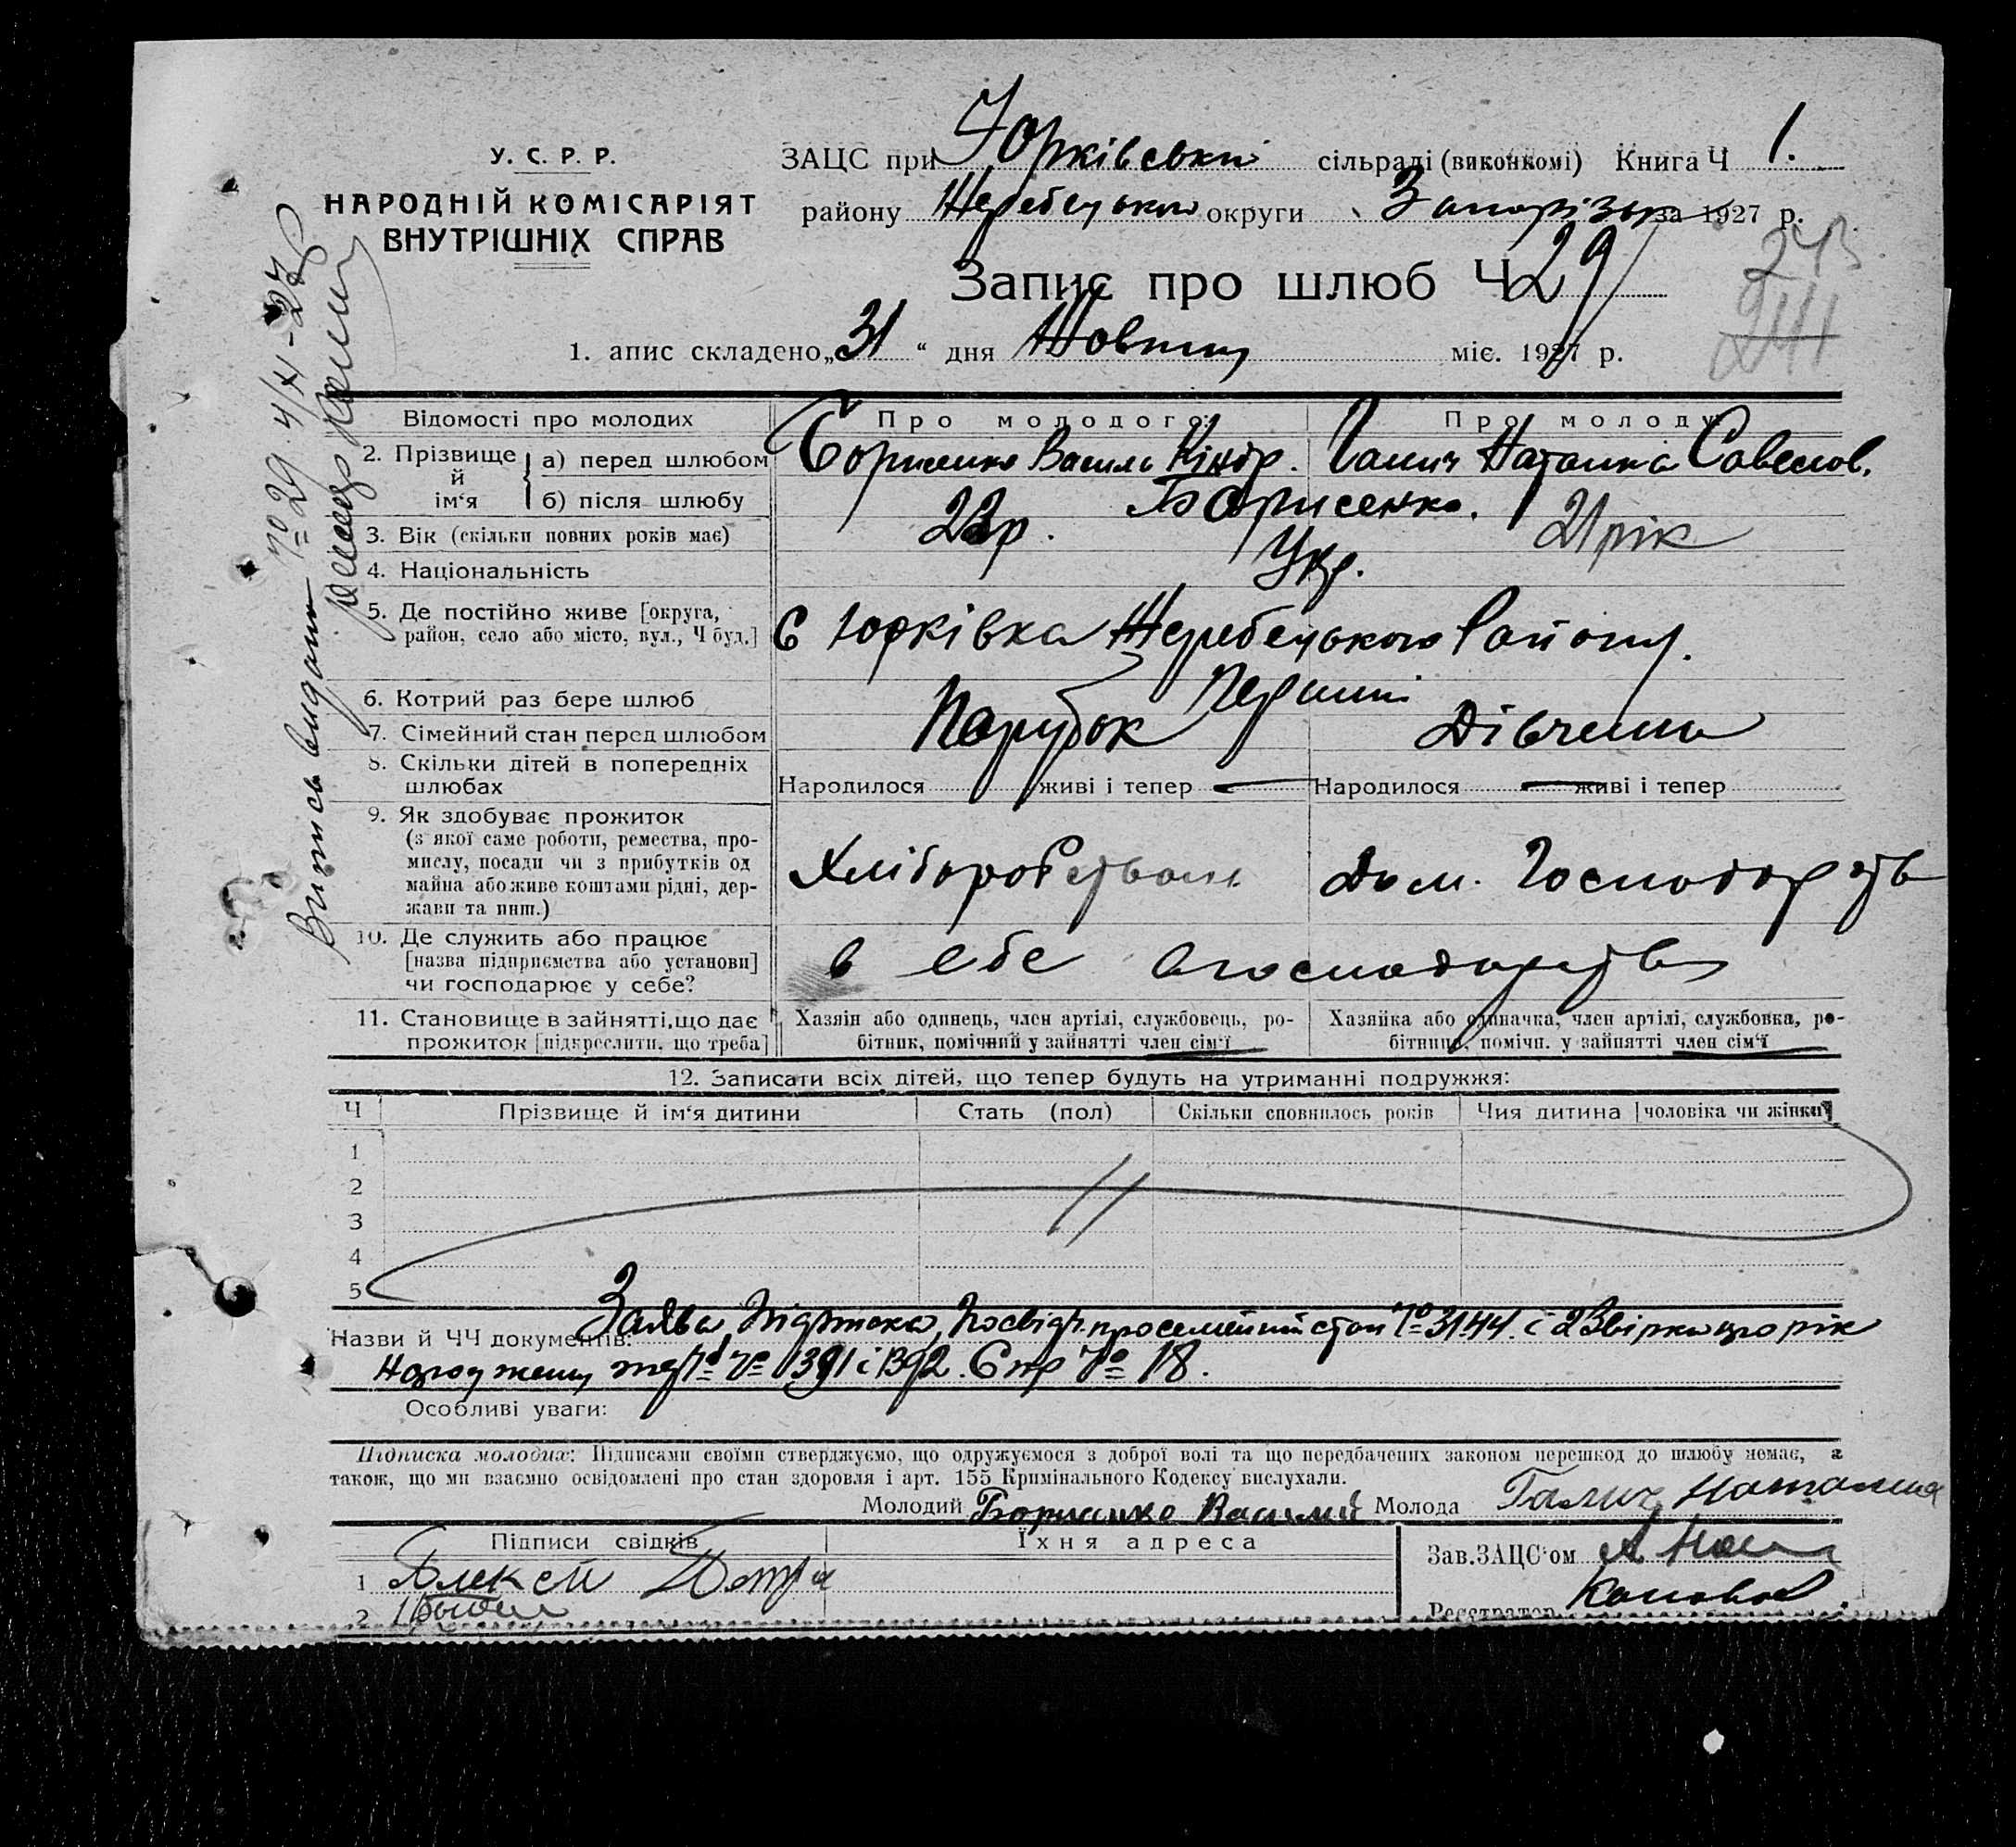 У. С. Р. Р.
НАРОДНІЙ КОМІСАРІЯТ
ВНУТРІШНІХ СПРАВ
ЗАЦС при Юрківський сільраді (виконкомі) Книга Ч 1.
району Жеребецького округи Запорізьк за 1927 р.
243
241
Запис про шлюб Ч 29
1. апис складено „31“ дня Жовтня міс. 1927 р.
Випись видани № 29 4/XI-27 р
Відомості про молодих Про молодого: Про молоду:
2. Прізвище й ім‘я { а) перед шлюбом Борисенко Василь Кіндр. Галич Наталка Савелов.
б) після шлюбу Борисенко.
3. Вік (скільки повних років має) 22р. 21 рік
4. Національність Укр.
5. Де постійно живе [округа, район, село або місто, вул., Ч буд.] С Юрківка Жеребецького Району.
6. Котрий раз бере шлюб Перший
7. Сімейний стан перед шлюбом Парубок Дівчина
8. Скільки дітей в попередніх шлюбах Народилося живі і тепер — Народилося — живі і тепер
9. Як здобуває прожиток
(з якої саме роботи, ремества, про-
мислу, посади чи з прибутків од
майна або живе коштами рідні, дер-
жави та инш.)
Хліборобством Дом. Господарств
10. Де служить або працює
[назва підприємства або установи]
чи господарює у себе?
в себе в господарстві
11. Становище в зайнятті, що дає
прожиток [підкреслити, що треба]
Хазяін або одинець, член артілі, службовець, ро-
бітник, помічний у зайнятті член сім‘ї
Хазяйка або одиначка, член артілі, службовка, ро-
бітниця, помічн. у зайнятті член сім‘ї
12. Записати всіх дітей, що тепер будуть на утриманні подружжя:
Ч Прізвище й ім‘я дитини Стать (пол) Скільки сповнилось років Чия дитина [чоловіка чи жінки]
1
2
3
4
5
Назви й ЧЧ документів: Заява, Підписка, Посвідч. про семейний стан № 3144 і 2 Звірки про рік
народження № 1391 і 1392. Стр № 18.
Особливі уваги:
Підписка молодих: Підписами своїми стверджуємо, що одружуємося з доброї волі та що передбачених законом перешкод до шлюбу немає, а
також, що ми взаємно освідомлені про стан здоровля і арт. 155 Кримінального Кодексу вислухали.
Молодий Борисенко Василий Молода Галич Наталия
Підписи свідків Їхня адреса
Зав. ЗАЦС‘ом
1 Алексей Петра
2
Реєстратор